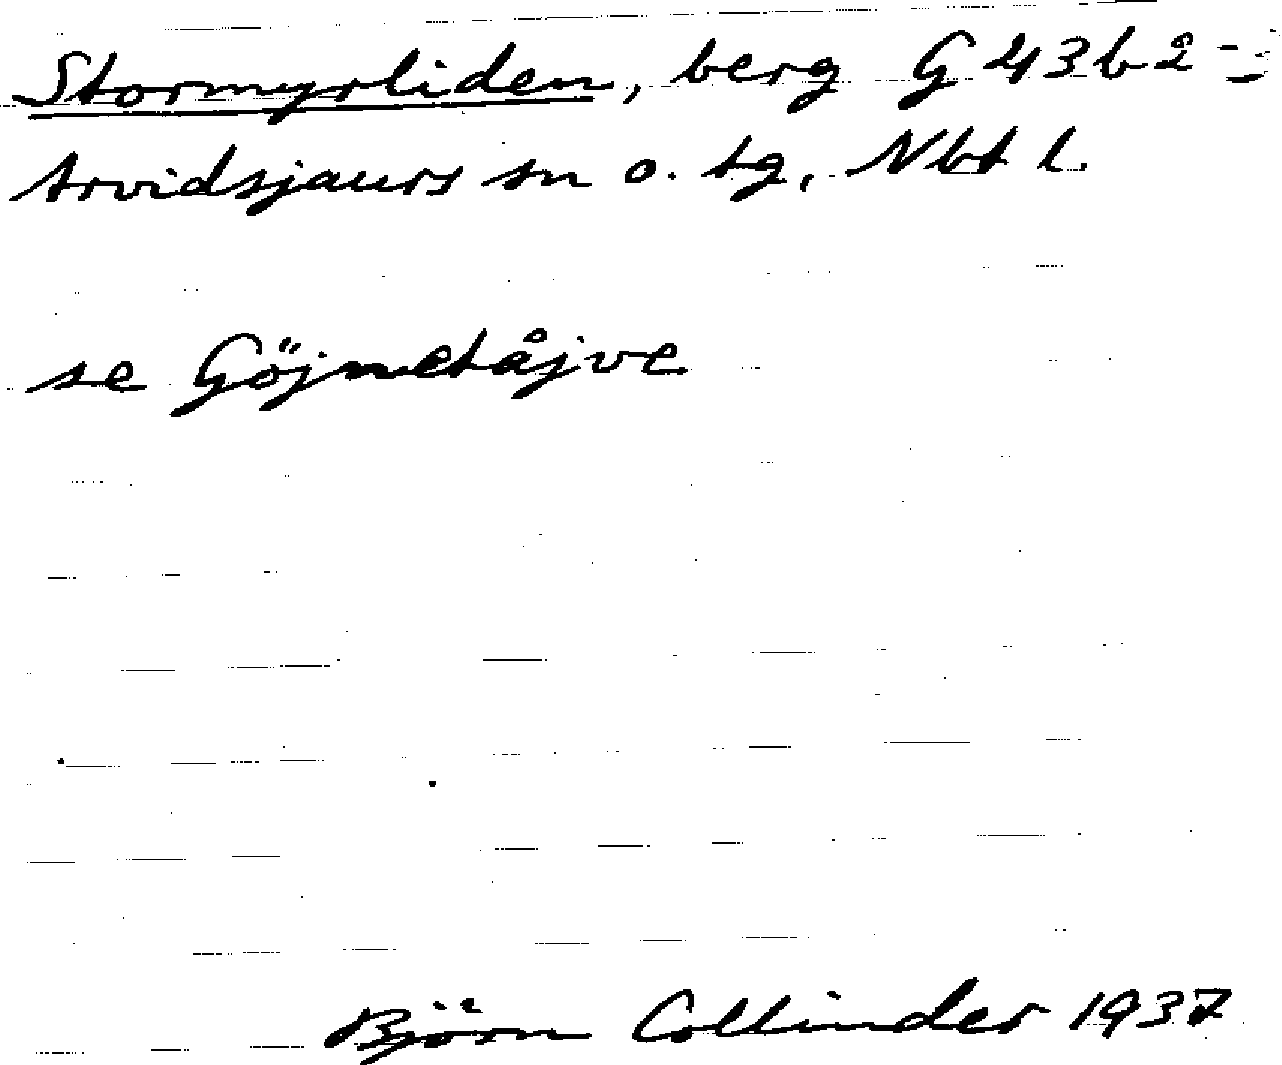 Stormyrliden, berg G 43b2 -
Arvidsjaurs sn o. tg, Nbt l.
se Göjnetåjve
Björn Collinder 1937